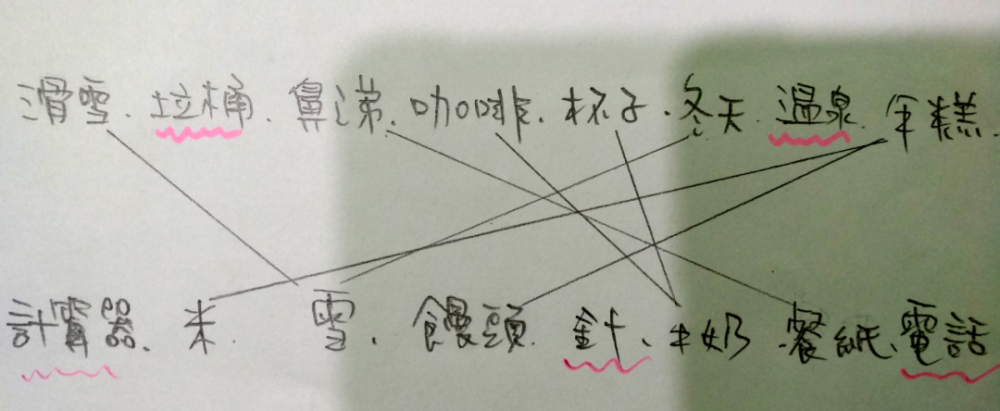 滑雪、垃桶、鼻涕、咖啡、杯子、冬天、温泉、年糕
計算器、米、雪、饅頭、針、牛奶、餐紙、電話